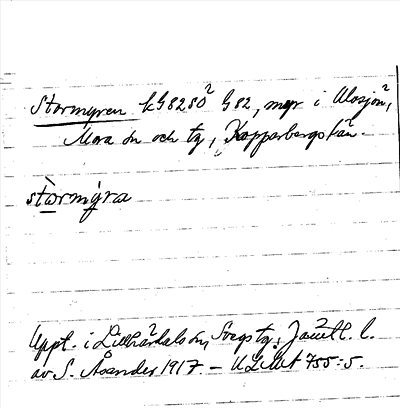 Stormyren k G8280² G82, myr i Älvsjön,
Mora sn och tg, Kopparbergs län.
stòrmýra
Uppt. i Lillhärdals sn, Svegs tg, Jämtl. l.
av S. Åsander 1917. – ULMA 755:5.